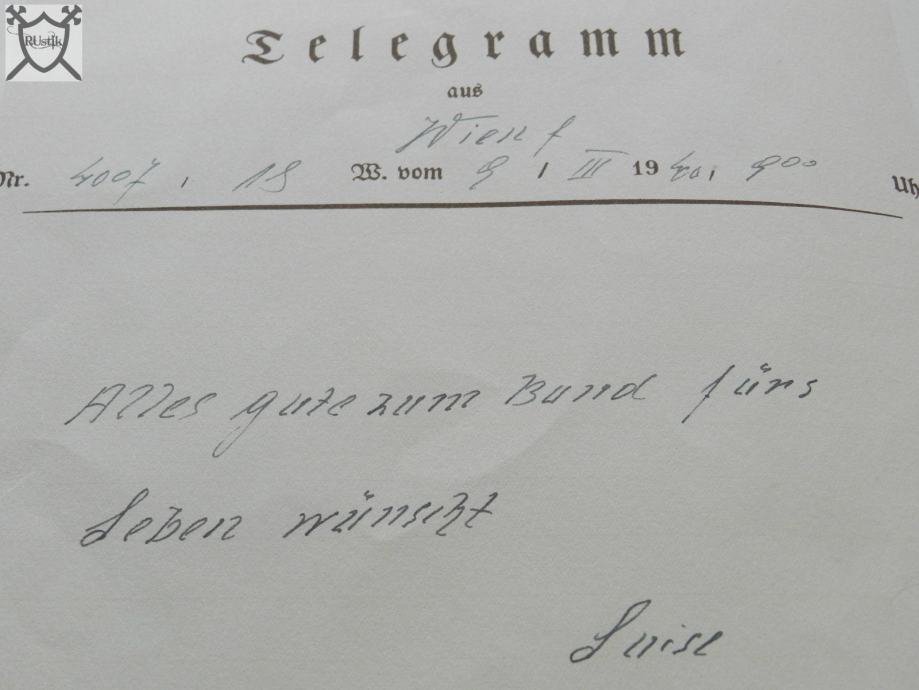 RUstik
Telegramm
aus
Wien f
Nr. 4007, 19 W. vom 9 / III 1940, 900 Uh
Alles gute zum Bund fürs
Leben wünscht
Luise